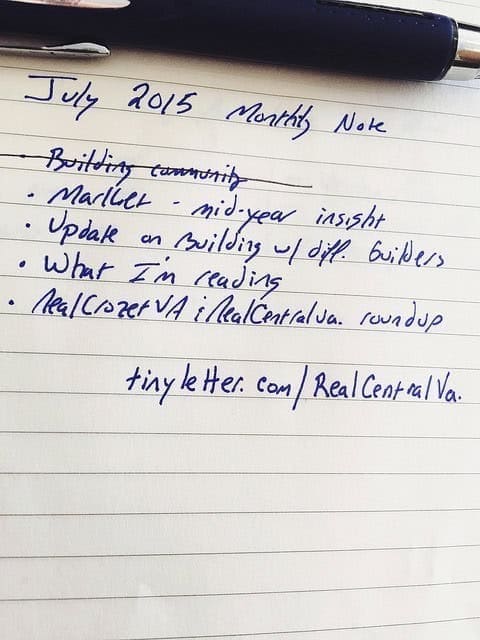 July 2015 Monthly Note
Building community
• Market - mid-year insight
• Update on Building w/ diff. builders
• What I'm reading
• RealCrozetVA & RealCentralVa. roundup
tinyletter.com/RealCentralVa.